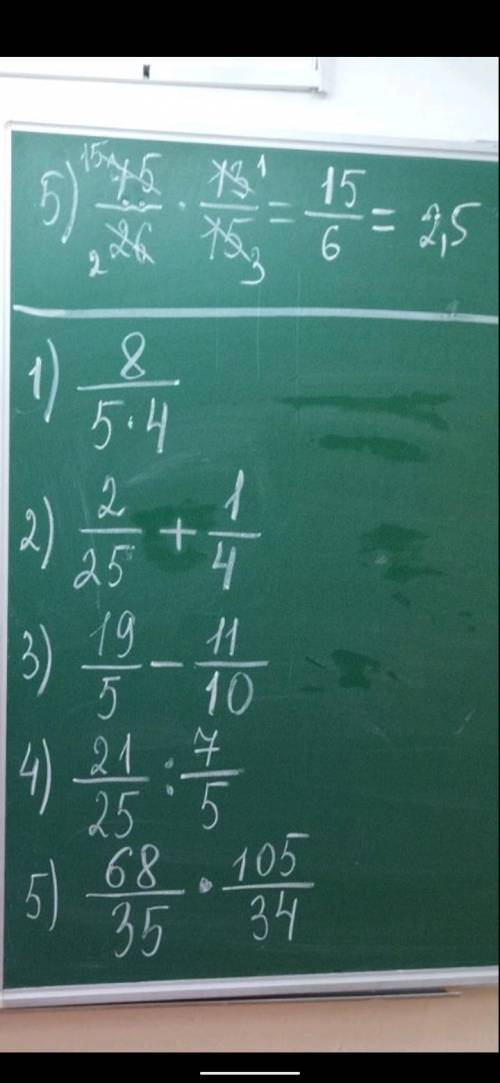 5) 75/26 · 13/15 = 15/6 = 2,5
1) 8/(5·4)
2) 2/25 + 1/4
3) 19/5 − 11/10
4) 21/25 : 7/5
5) 68/35 · 105/34